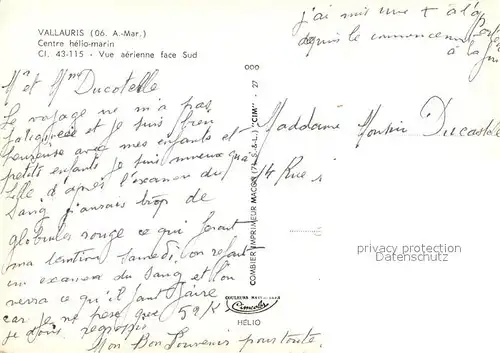 VALLAURIS (06. A.-Mar.)
Centre hélio-marin
Cl. 43-115 - Vue aérienne face Sud
j'ai mis une + à l'
depuis le commencement
à la fin
Mr et Mme Ducatelle
Le voyage ne m'a pas
fatiguée et je suis bien
heureuse avec mes enfants et
petits enfants je suis mieux qu'a
Lille d'après l'examen du
Sang j'aurais trop de
globules rouge ce qui ferait
ma tention Samedi on refait
un examen du Sang et l'on
verra ce qu'il faut faire
car je ne pese que 59 K
je dois regrossir
Mon Bon Souvenir pour toute
COMBIER IMPRIMEUR MACON (71 S.-&-L.) "CIM" - 27
Maddame Monsieur Ducastelle
14 Rue
privacy protection
Datenschutz
COULEURS NATURELLES
Cimcolor
HELIO